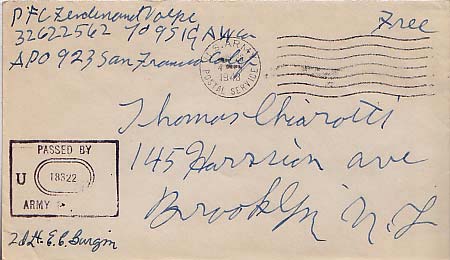 PFC Ferdinand Volpe
32622562 709 SIG AW Co
APO 923 San Francisco Calif
Free
U.S. ARMY
1943
POSTAL SERVICE
Thomas Chiarotti
145 Harrsion ave
Brooklyn N.Y
PASSED BY
U 18322
ARMY
2d Lt. E.C. Burgin